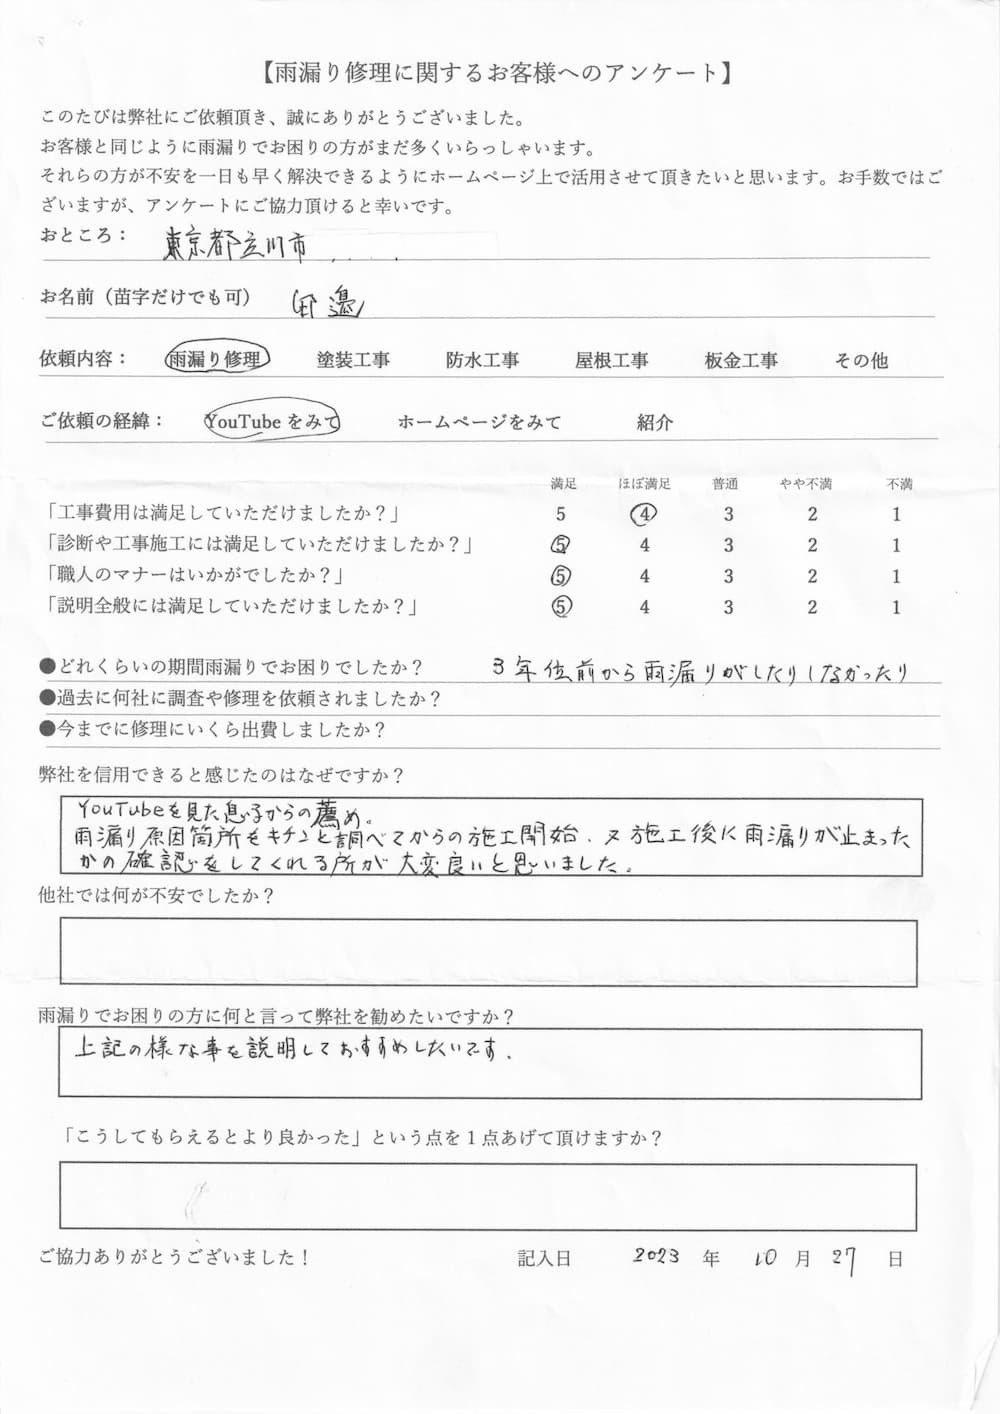 【雨漏り修理に関するお客様へのアンケート】
このたびは弊社にご依頼頂き、誠にありがとうございました。
お客様と同じように雨漏りでお困りの方がまだ多くいらっしゃいます。
それらの方が不安を一日も早く解決できるようにホームページ上で活用させて頂きたいと思います。お手数ではご
ざいますが、アンケートにご協力頂けると幸いです。
おところ： 東京都立川市
お名前（苗字だけでも可） 田邉
依頼内容： 雨漏り修理 塗装工事 防水工事 屋根工事 板金工事 その他
ご依頼の経緯： YouTubeをみて ホームページをみて 紹介
満足 ほぼ満足 普通 やや不満 不満
「工事費用は満足していただけましたか？」 5 4 3 2 1
「診断や工事施工には満足していただけましたか？」 5 4 3 2 1
「職人のマナーはいかがでしたか？」 5 4 3 2 1
「説明全般には満足していただけましたか？」 5 4 3 2 1
●どれくらいの期間雨漏りでお困りでしたか？ 3年位前から雨漏りがしたりしなかったり
●過去に何社に調査や修理を依頼されましたか？
●今までに修理にいくら出費しましたか？
弊社を信用できると感じたのはなぜですか？
YouTubeを見た息子からの薦め。
雨漏り原因箇所もキチンと調べてからの施工開始、又施工後に雨漏りが止まった
かの確認をしてくれる所が大変良いと思いました。
他社では何が不安でしたか？
雨漏りでお困りの方に何と言って弊社を勧めたいですか？
上記の様な事を説明しておすすめしたいです。
「こうしてもらえるとより良かった」という点を１点あげて頂けますか？
ご協力ありがとうございました！ 記入日 2023 年 10 月 27 日